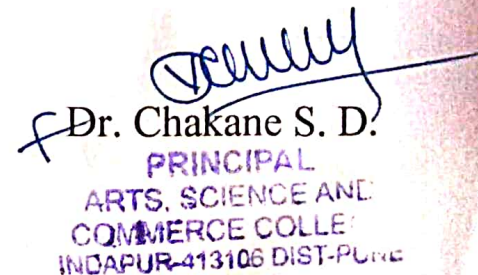 Dr. Chakane S. D.
PRINCIPAL
ARTS, SCIENCE AND
COMMERCE COLLE
INDAPUR-413106 DIST-PUNE